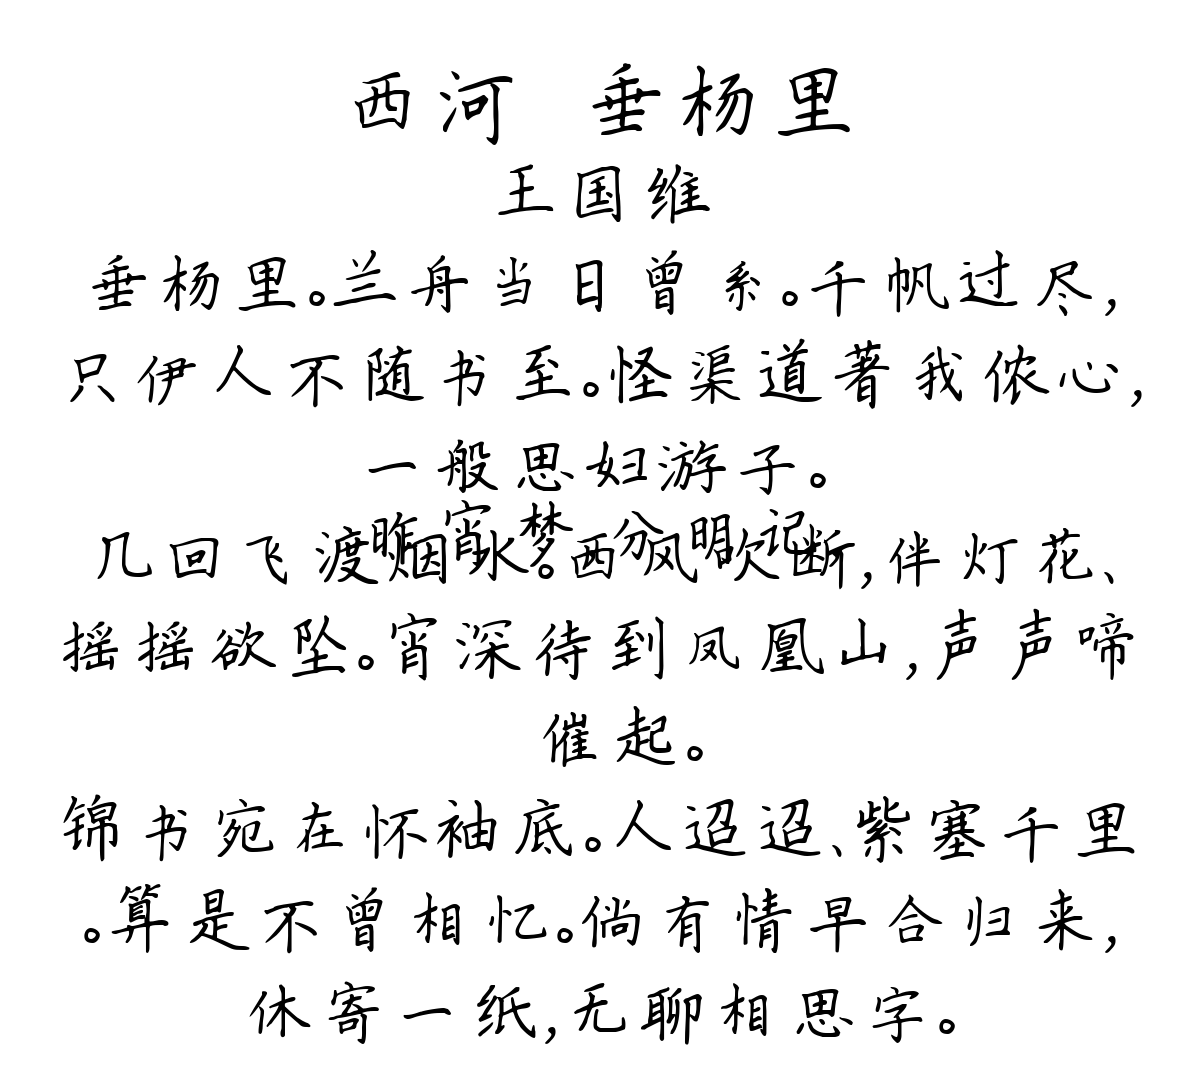 西河 垂杨里
王国维
垂杨里。兰舟当日曾系。千帆过尽,
只伊人不随书至。怪渠道著我侬心,
一般思妇游子。
昨宵梦分明记
几回飞渡烟水。西风吹断,伴灯花、
摇摇欲坠。宵深待到凤凰山,声声啼
催起。
锦书宛在怀袖底。人迢迢、紫塞千里
。算是不曾相忆。倘有情早合归来,
休寄一纸,无聊相思字。